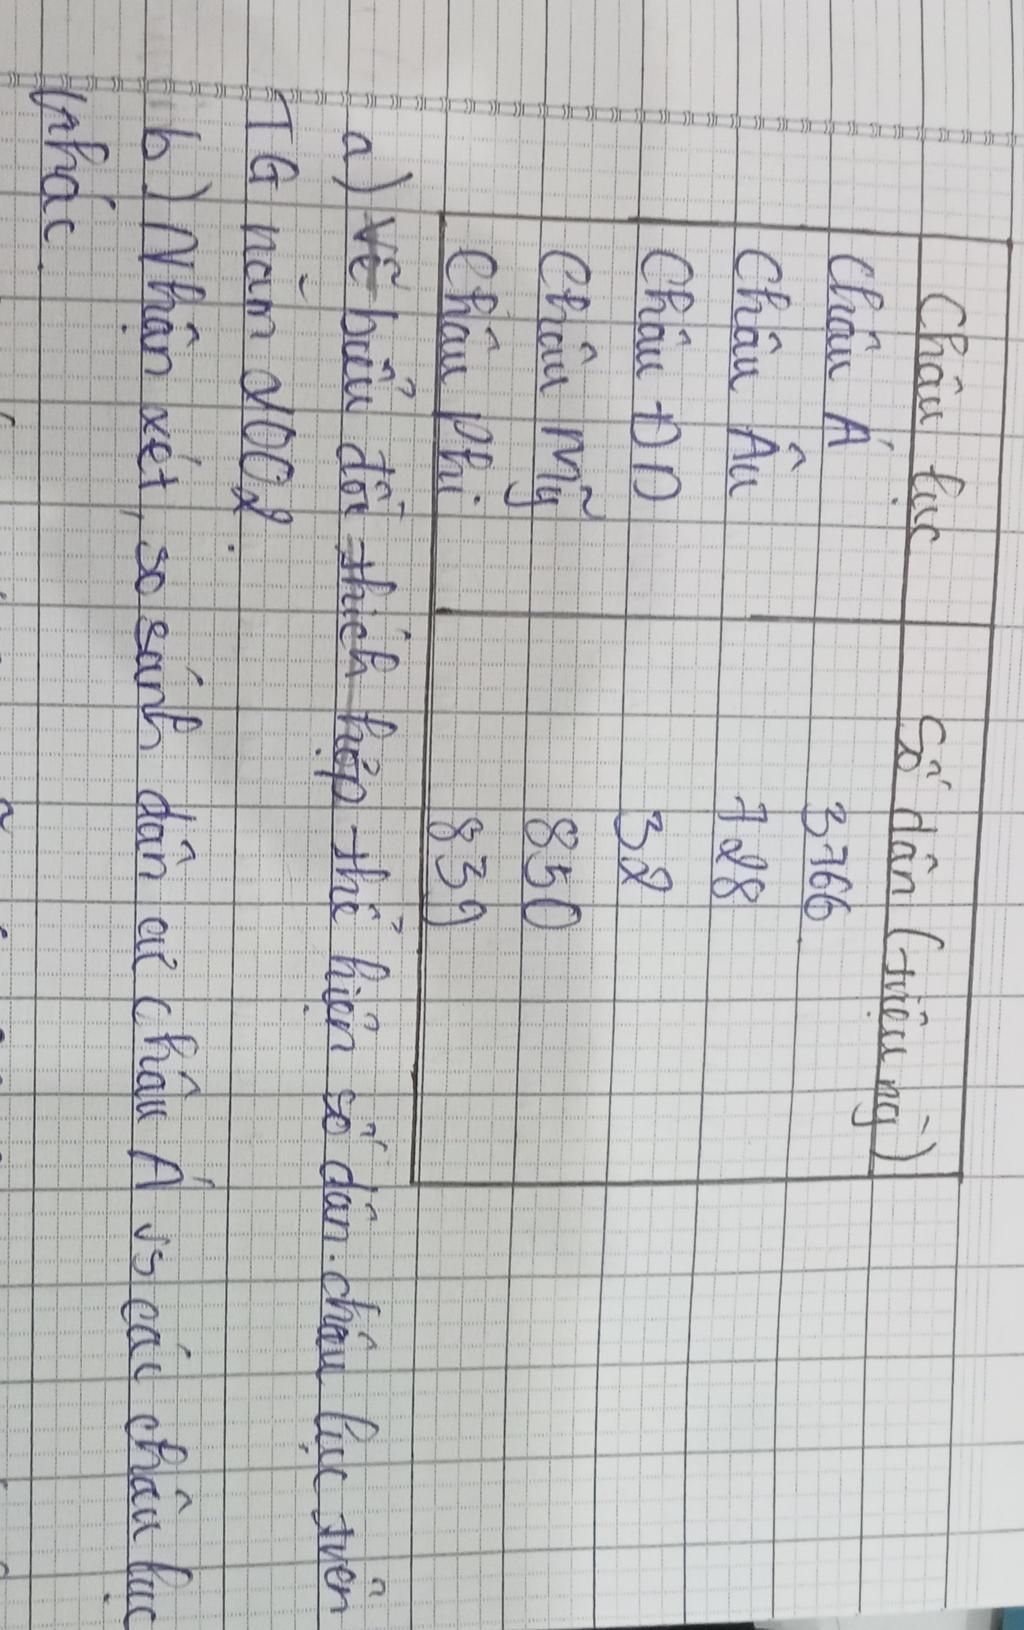 Châu lục Số dân (triệu ng)
Châu Á 3766
Châu Âu 728
Châu ĐD 32
Châu Mỹ 850
Châu Phi 839
a) Vẽ biểu đồ thích hợp thể hiện số dân châu lục trên
TG năm 2002.
b) Nhận xét, so sánh dân cư châu Á vs các châu lục
khác.